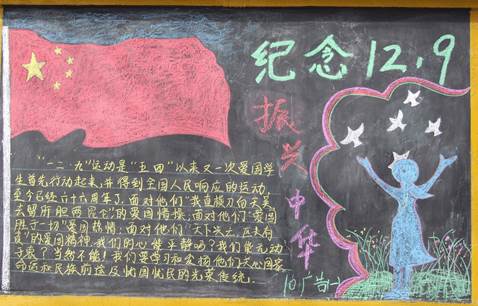 纪念12.9
振兴中华
"一二·九"运动是"五四"以来又一次爱国学
生首先行动起来，并得到全国人民响应的运动，
至今已经六十六周年了，面对他们"我自横刀向天笑
去留肝胆两昆仑"的爱国情操，面对他们"爱国
胜于一切"爱国热情；面对他们"天下兴亡，匹夫有
责"的爱国精神，我们的心能平静吗？我们能无动
于衷？当然不能！我们要学习和发扬他们关心国家
命运和民族前途及忧国忧民的光荣传统．
10广告一